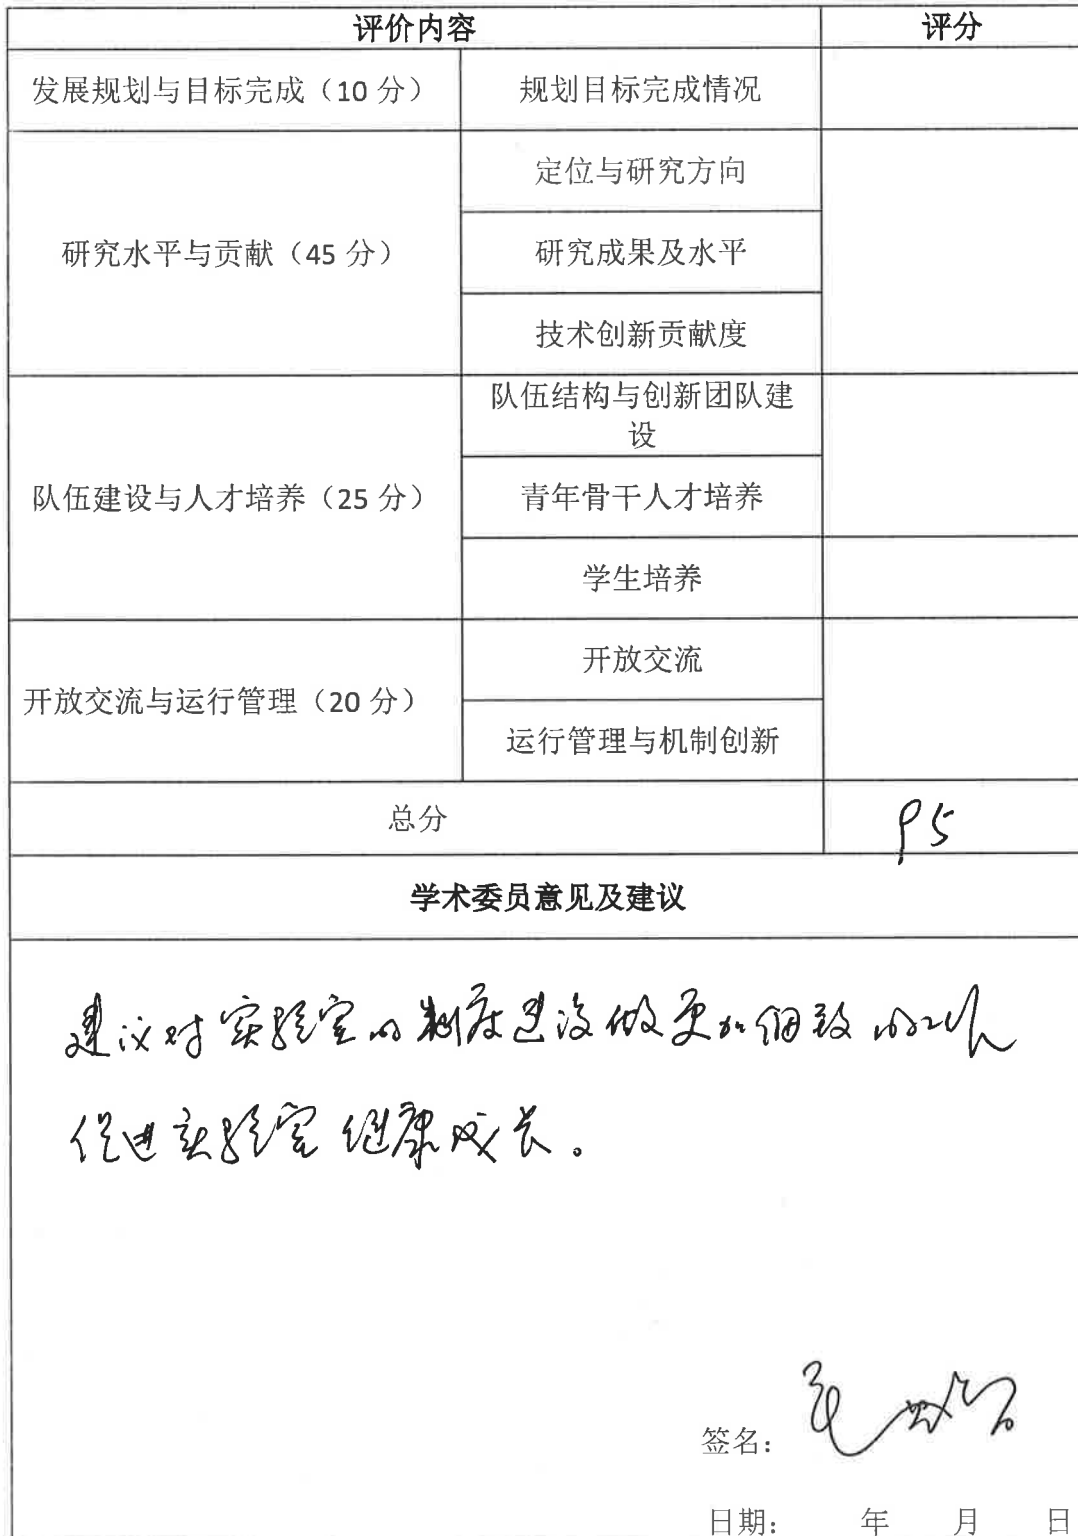 评价内容 评分
发展规划与目标完成（10 分） 规划目标完成情况
研究水平与贡献（45 分） 定位与研究方向
研究成果及水平
技术创新贡献度
队伍建设与人才培养（25 分） 队伍结构与创新团队建
设
青年骨干人才培养
学生培养
开放交流与运行管理（20 分） 开放交流
运行管理与机制创新
总分 95
学术委员意见及建议
建议对实验室的制度建设做更加细致的工作
促进实验室健康成长。
签名：
日期： 年 月 日